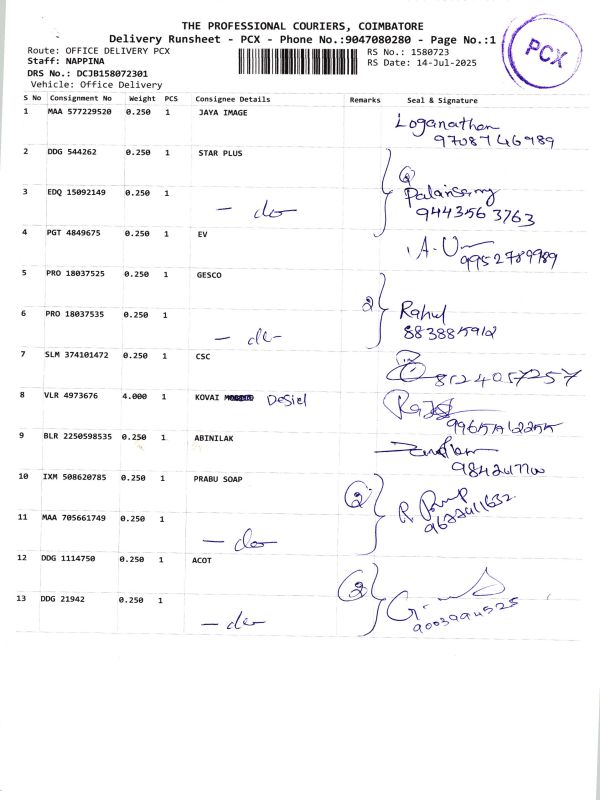 THE PROFESSIONAL COURIERS, COIMBATORE
Delivery Runsheet - PCX - Phone No.:9047080280 - Page No.:1
Route: OFFICE DELIVERY PCX
Staff: NAPPINA
DRS No.: DCJB158072301
Vehicle: Office Delivery
RS No.: 1580723
RS Date: 14-Jul-2025
PCX
S No Consignment No Weight PCS Consignee Details Remarks Seal & Signature
1 MAA 577229520 0.250 1 JAYA IMAGE Loganathan
9708746989
2 DDG 544262 0.250 1 STAR PLUS
3 EDQ 15092149 0.250 1 - do Palanisamy
9443563763
4 PGT 4849675 0.250 1 EV
9952789989
5 PRO 18037525 0.250 1 GESCO
6 PRO 18037535 0.250 1 - do - 2 Rahul
7 SLM 374101472 0.250 1 CSC
8124057257
8 VLR 4973676 4.000 1 KOVAI Desiel
9 BLR 2250598535 0.250 1 ABINILAK
10 IXM 508620785 0.250 1 PRABU SOAP 2
11 MAA 705661749 0.250 1 - do
12 DDG 1114750 0.250 1 ACOT 2
13 DDG 21942 0.250 1 - do